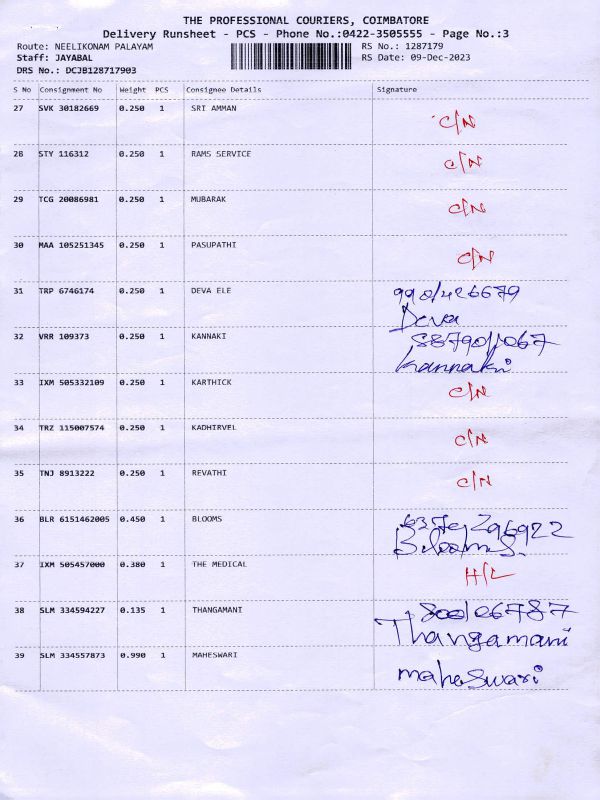 THE PROFESSIONAL COURIERS, COIMBATORE
Delivery Runsheet - PCS - Phone No.:0422-3505555 - Page No.:3
Route: NEELIKONAM PALAYAM RS No.: 1287179
Staff: JAYABAL RS Date: 09-Dec-2023
DRS No.: DCJB128717903
S No Consignment No Weight PCS Consignee Details Signature
27 SVK 30182669 0.250 1 SRI AMMAN C/N
28 STY 116312 0.250 1 RAMS SERVICE C/N
29 TCG 20086981 0.250 1 MUBARAK C/N
30 MAA 105251345 0.250 1 PASUPATHI C/N
31 TRP 6746174 0.250 1 DEVA ELE
Deva
32 VRR 109373 0.250 1 KANNAKI
Kannaki
33 IXM 505332109 0.250 1 KARTHICK C/N
34 TRZ 115007574 0.250 1 KADHIRVEL C/N
35 TNJ 8913222 0.250 1 REVATHI C/N
36 BLR 6151462005 0.450 1 BLOOMS
Blooms.
37 IXM 505457000 0.380 1 THE MEDICAL H/L
38 SLM 334594227 0.135 1 THANGAMANI
Thangamani
39 SLM 334557873 0.990 1 MAHESWARI
maheswari